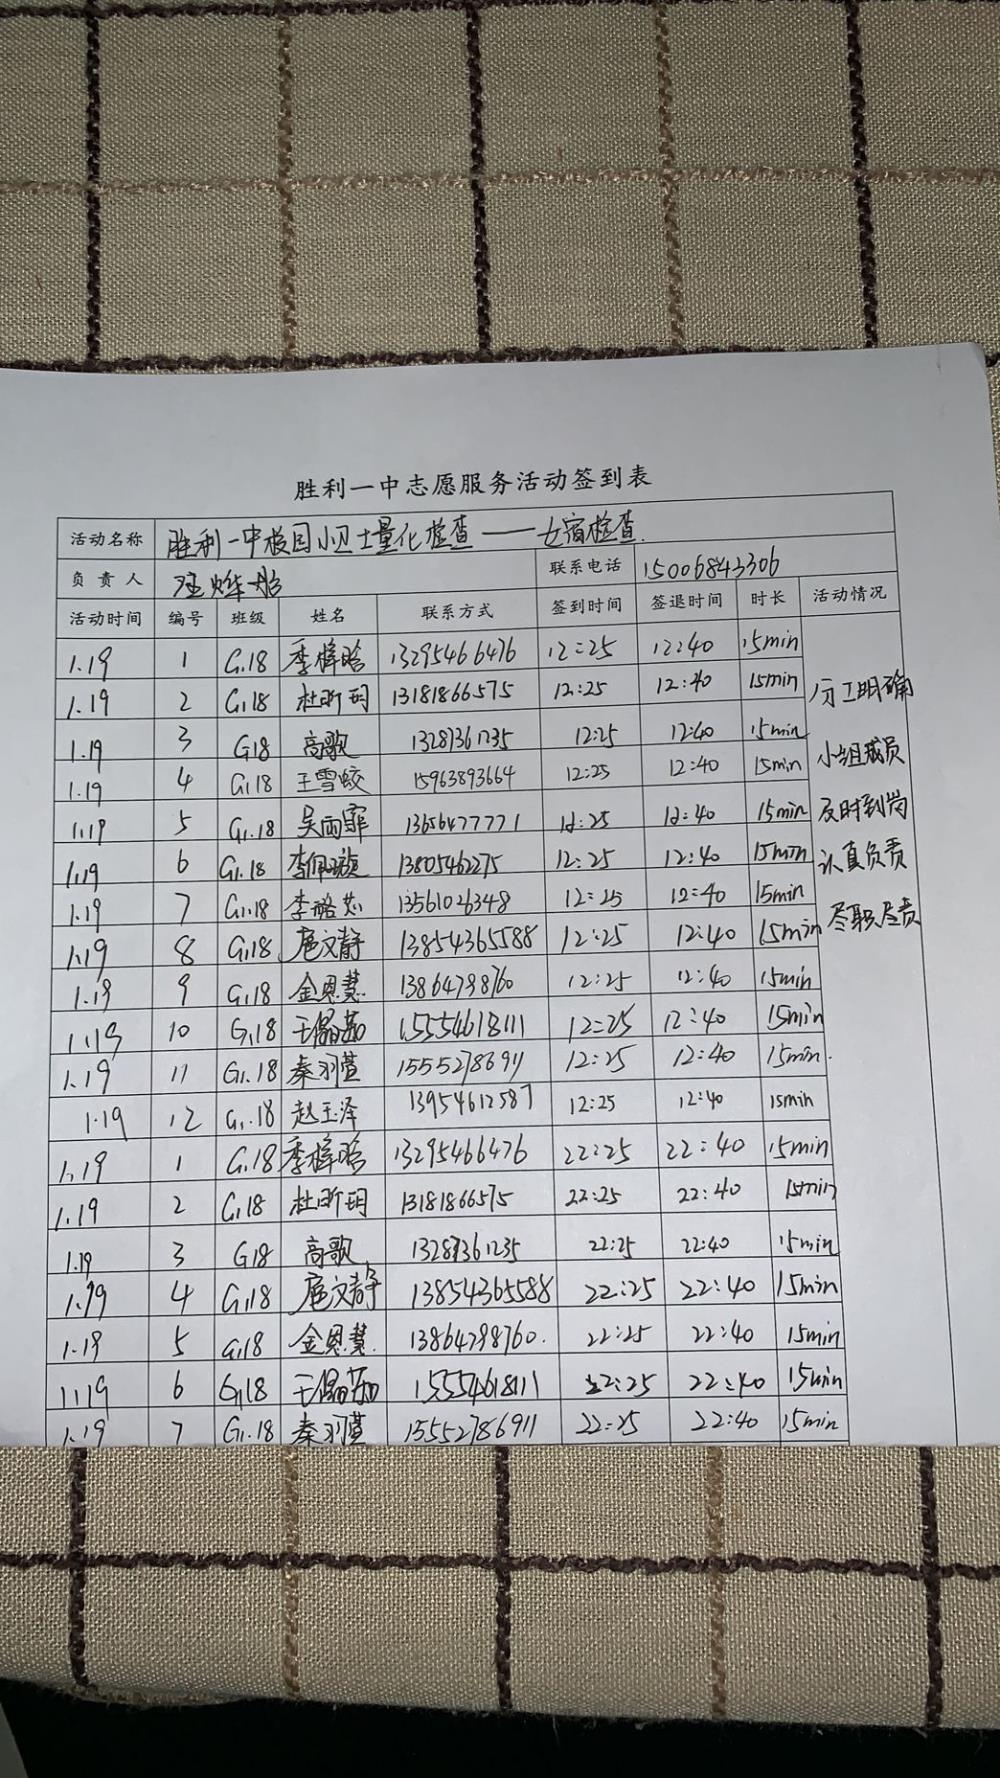 胜利一中志愿服务活动签到表
活动名称 胜利一中校园小卫士量化检查——女宿检查
负责人 联系电话 15006843306
活动时间 编号 班级 姓名 联系方式 签到时间 签退时间 时长 活动情况
1.19 1 G.18 季梓晗 13295466476 12:25 12:40 15min
1.19 2 G.18 杜昕玥 13181866575 12:25 12:40 15min 分工明确
1.19 3 G18 高歌 13287361235 12:25 12:40 15min
1.19 4 G.18 王雪皎 15963893664 12:25 12:40 15min 小组成员
1.19 5 G1.18 吴雨霏 13656477771 12:25 12:40 15min 及时到岗
1.19 6 G1.18 李佩璇 13805462275 12:25 12:40 15min 认真负责
1.19 7 G1.18 李 13561026348 12:25 12:40 15min 尽职尽责
1.19 8 G.18 扈文静 13854365588 12:25 12:40 15min
1.19 9 G.18 金恩慧 13864798760 12:25 12:40 15min
1.19 10 G.18 15554618111 12:25 12:40 15min
1.19 11 G1.18 秦羽萱 15552786911 12:25 12:40 15min.
1.19 12 G1.18 赵玉泽 13954612587 12:25 12:40 15min
1.19 1 G.18 季梓晗 13295466476 22:25 22:40 15min
1.19 2 G.18 杜昕玥 13181866575 22:25 22:40 15min
1.19 3 G18 高歌 13287361235 22:25 22:40 15min
1.19 4 G.18 扈文静 13854365588 22:25 22:40 15min
1.19 5 G.18 金恩慧 13864798760. 22:25 22:40 15min
1.19 6 G.18 15554618111 22:25 22:40 15min
1.19 7 G1.18 秦羽萱 15552786911 22:25 22:40 15min